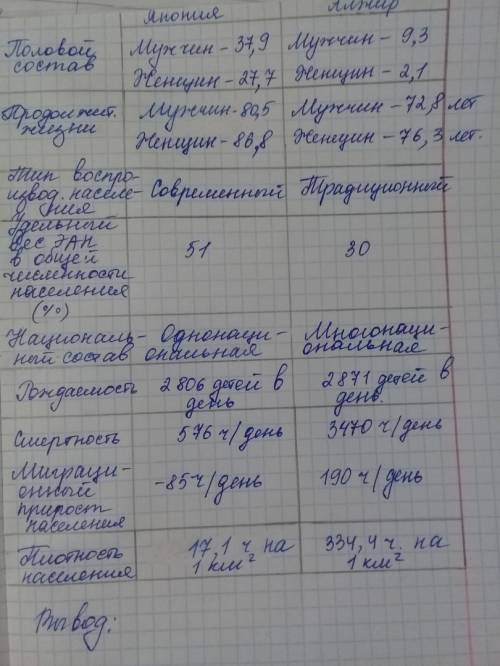 Япония Алжир
Половой Мужчин - 37,9 Мужчин - 9,3
состав Женщин - 27,7 Женщин - 2,1
Продолжит. Мужчин - 80,5 Мужчин - 72,8 лет
жизни Женщин - 86,8 Женщин - 76,3 лет.
Тип воспро-
извод. населе- Современный Традиционный
ния
Удельный
вес ЭАН 51 30
в общей
численности
населения
(%)
Националь- Одноnаци- Многонаци-
ный состав ональная ональная
Рождаемость 2806 детей в 2871 детей в
день день.
Смертность 576 ч/день 3470 ч/день
Миграци- -85 ч/день 190 ч/день
онный
прирост
населения
Плотность 17,1 ч. на 334,4 ч. на
населения 1 км² 1 км²
Вывод: